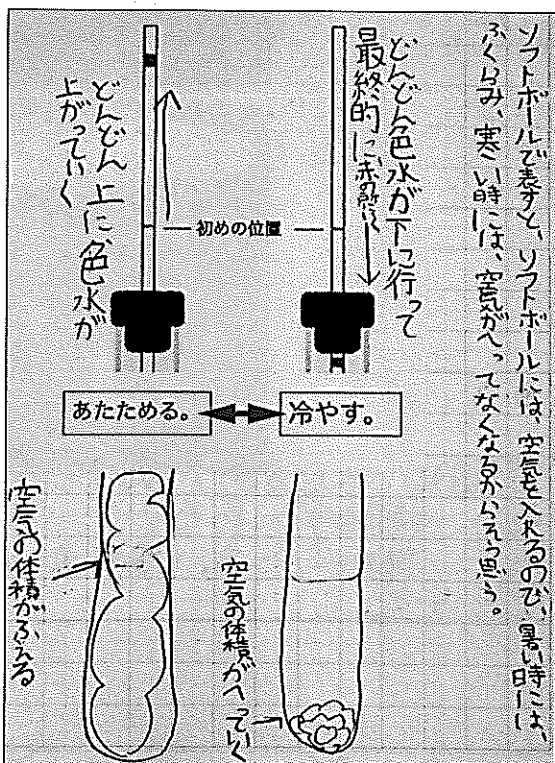 ソフトボールで表すと、ソフトボールには、空気を入れるので、暑い時には、
ふくらみ、寒い時には、空気がへってなくなるからそう思う。
どんどん色水が下に行って
最終的に、赤の所に
どんどん上に、色水が
上がっていく
初めの位置
あたためる。
冷やす。
空気の体積がへっていく
空気の体積がふえる